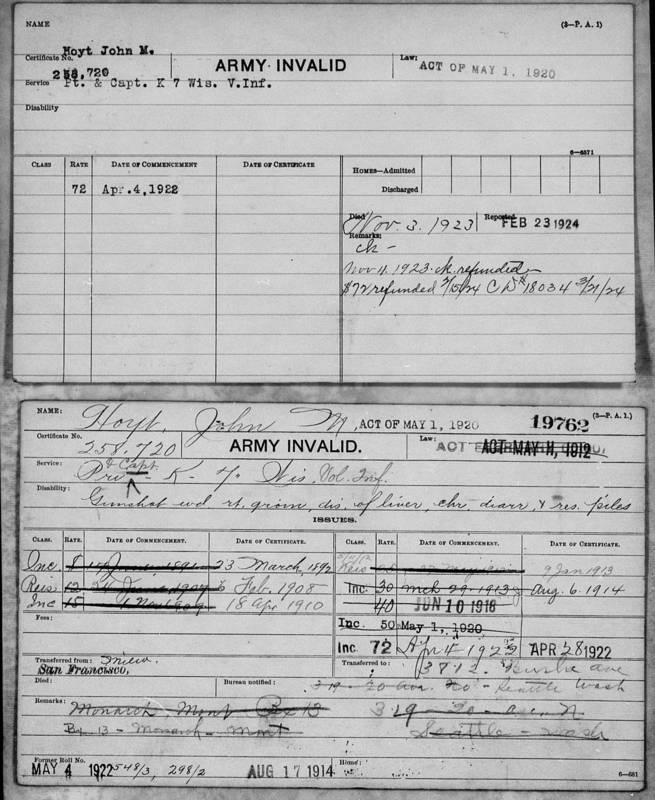 NAME (3-P. A. 1)
Hoyt John M.
Certificate No. 258,720 ARMY INVALID Law: ACT OF MAY 1, 1920
Service Pt. & Capt. K 7 Wis. V.Inf.
Disability
6-6571
CLASS RATE DATE OF COMMENCEMENT DATE OF CERTIFICATE HOMES—Admitted
Discharged
72 Apr.4,1922
Died Nov. 3. 1923 Reported FEB 23 1924
Remarks:
ck -
Nov 4. 1923. ck. refunded
$72 refunded 2/15/24 C D # 18034 3/21/24
NAME: Hoyt, John M, ACT OF MAY 1, 1920 19762 (3-P. A. 1.)
Certificate No. 258.720 ARMY INVALID. Law: ACT ACT MAY 11, 1912
Service: Pri & Capt. - K - 7 Wis. Vol. Inf.
Disability: Gunshot wd rt. groin, dis. of liver, chr diarr, & res. piles
ISSUES.
CLASS. RATE. DATE OF COMMENCEMENT. DATE OF CERTIFICATE. CLASS. RATE. DATE OF COMMENCEMENT. DATE OF CERTIFICATE.
Inc. 8 1891 23 March, 1892 Reis 9 Jan 1913
Reis 12 24 June, 1907 6 Feb. 1908 Inc. 30 Mch 29-1913 Aug. 6. 1914
Inc 15 1 Nov 1909 18 Apr 1910 40 JUN 10 1918
Fees: Inc. 50 May 1, 1920
Inc 72 Apr 4 1922 APR 28 1922
Transferred from: San Francisco, Transferred to: 3812 ave
Died: Bureau notified: 319 - 20 Ave. No - Seattle Wash
Remarks: Monarch, Mont Bx 13 319 - 20 - ave. N
Bx 13 - Monarch - Mont Seattle - Wash
Former Roll No. Home:
MAY 4 1922 548/3, 298/2 AUG 17 1914 6-681